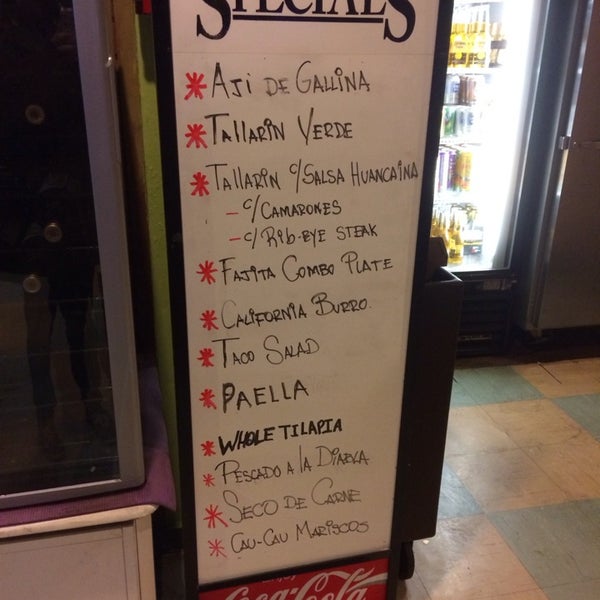 SPECIALS
* AJI DE GALLINA
* TALLARIN VERDE
* TALLARIN C/SALSA HUANCAINA
- C/CAMARONES
- C/RIB-EYE STEAK
* FAJITA COMBO PLATE
* CALIFORNIA BURRO.
* TACO SALAD
* PAELLA
* WHOLE TILAPIA
* PESCADO A LA DIABLA
* SECO DE CARNE
* CAU-CAU MARISCOS
Coca-Cola